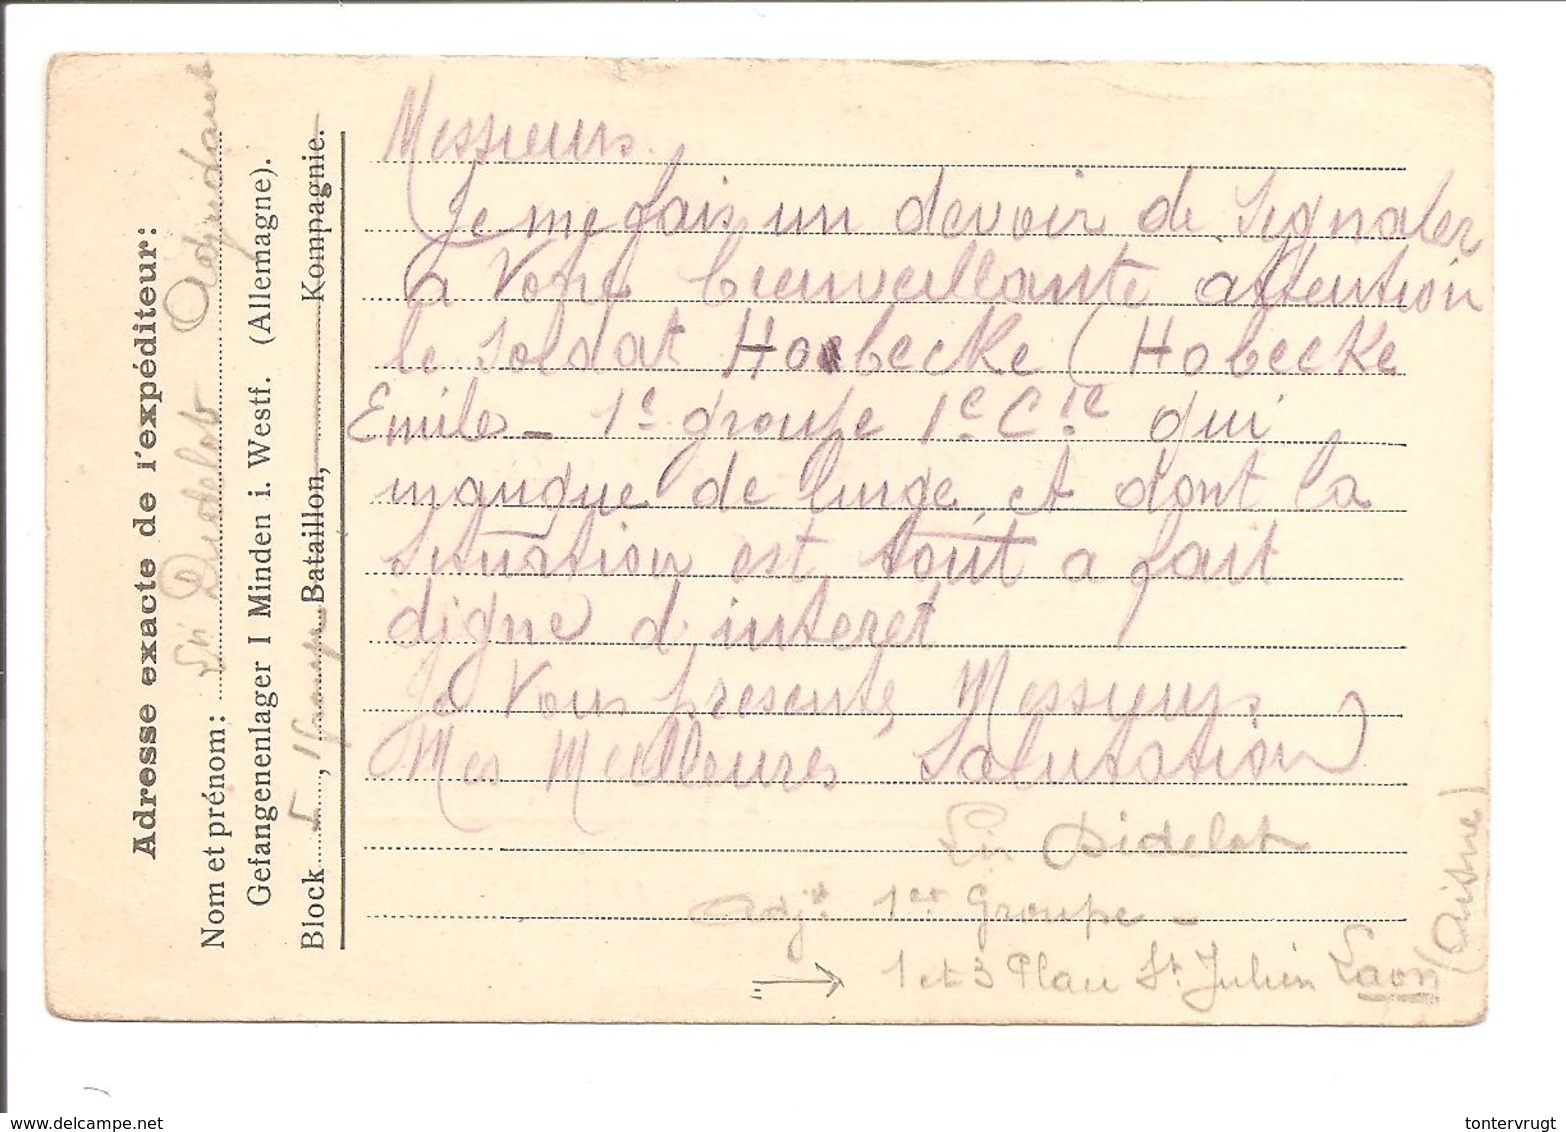 Adresse exacte de l'expéditeur:
Nom et prénom: Didelot Adjudant
Gefangenenlager I Minden i. Westf. (Allemagne).
Block I, 1 groupe Bataillon, Kompagnie.
Messieurs.
Je me fais un devoir de signaler
a votre bienveillante attention
le soldat Hobecke (Hobecke
Emile - 1e groupe 1e Cie qui
manque de linge, et dont la
situation est tout a fait
digne d'interet
Je vous presente, Messieurs
Mes Meilleures Salutation)
Didelot
Adjt 1er Groupe -
1 et 3 Place St Julien Laon (Aisne)
www.delcampe.net
tontervrugt